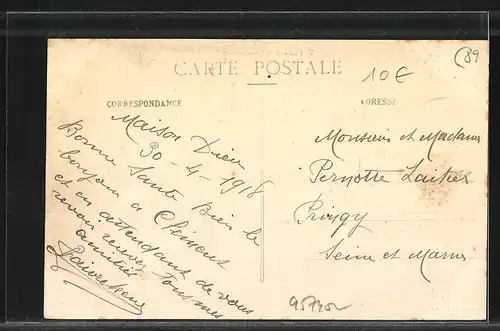 (89
CARTE POSTALE
10€
CORRESPONDANCE
ADRESSE
Maison Dieu
30-4-1918
Bonne Santé Bien le
bonjour a Clément
et en attendant de vous
revoir recevez tous mes
amitiés
Monsieur et Madame
Pernotte Laitier
Pringy
Seine et Marne